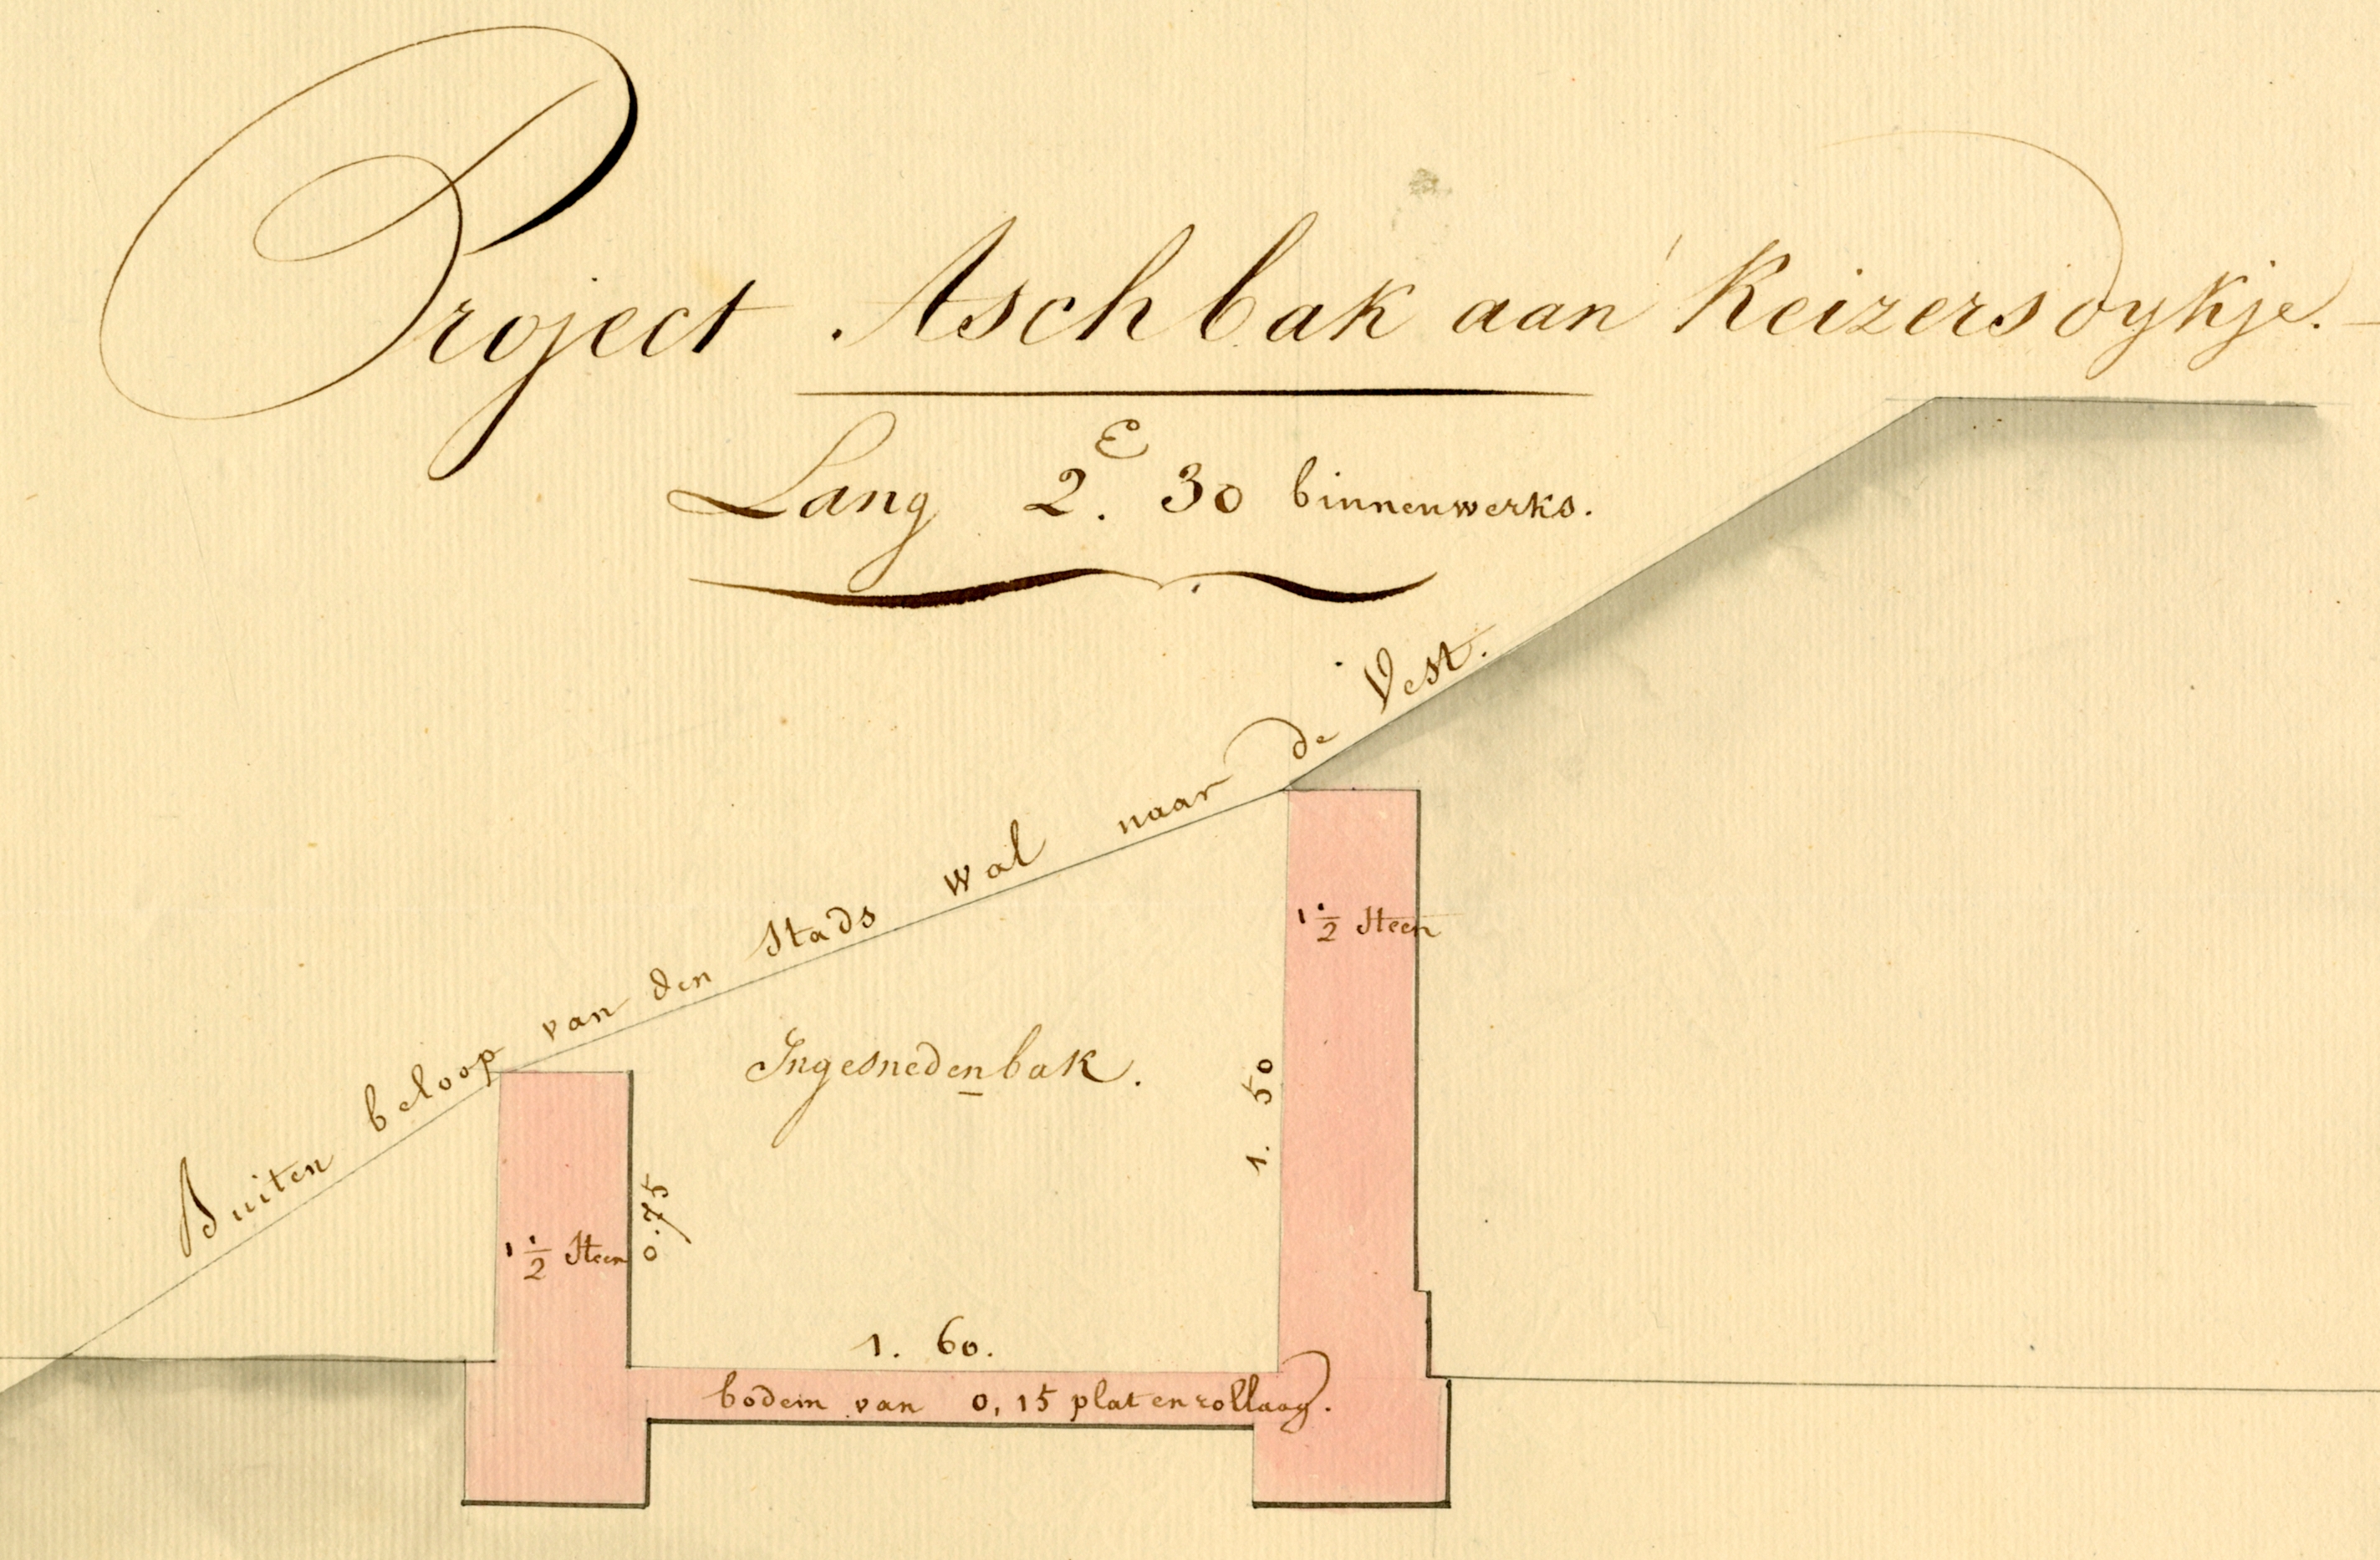 Project Aschbak aan 'Keizersdykje.
Lang 2.E 30 binnenwerks.
Buiten beloop van den Stads wal naar de Vest.
1 1/2 Steen
Ingesnedenbak.
1. 50
0.75
1 1/2 Steen
1. 60.
bodem van 0,15 plat en rollaag.